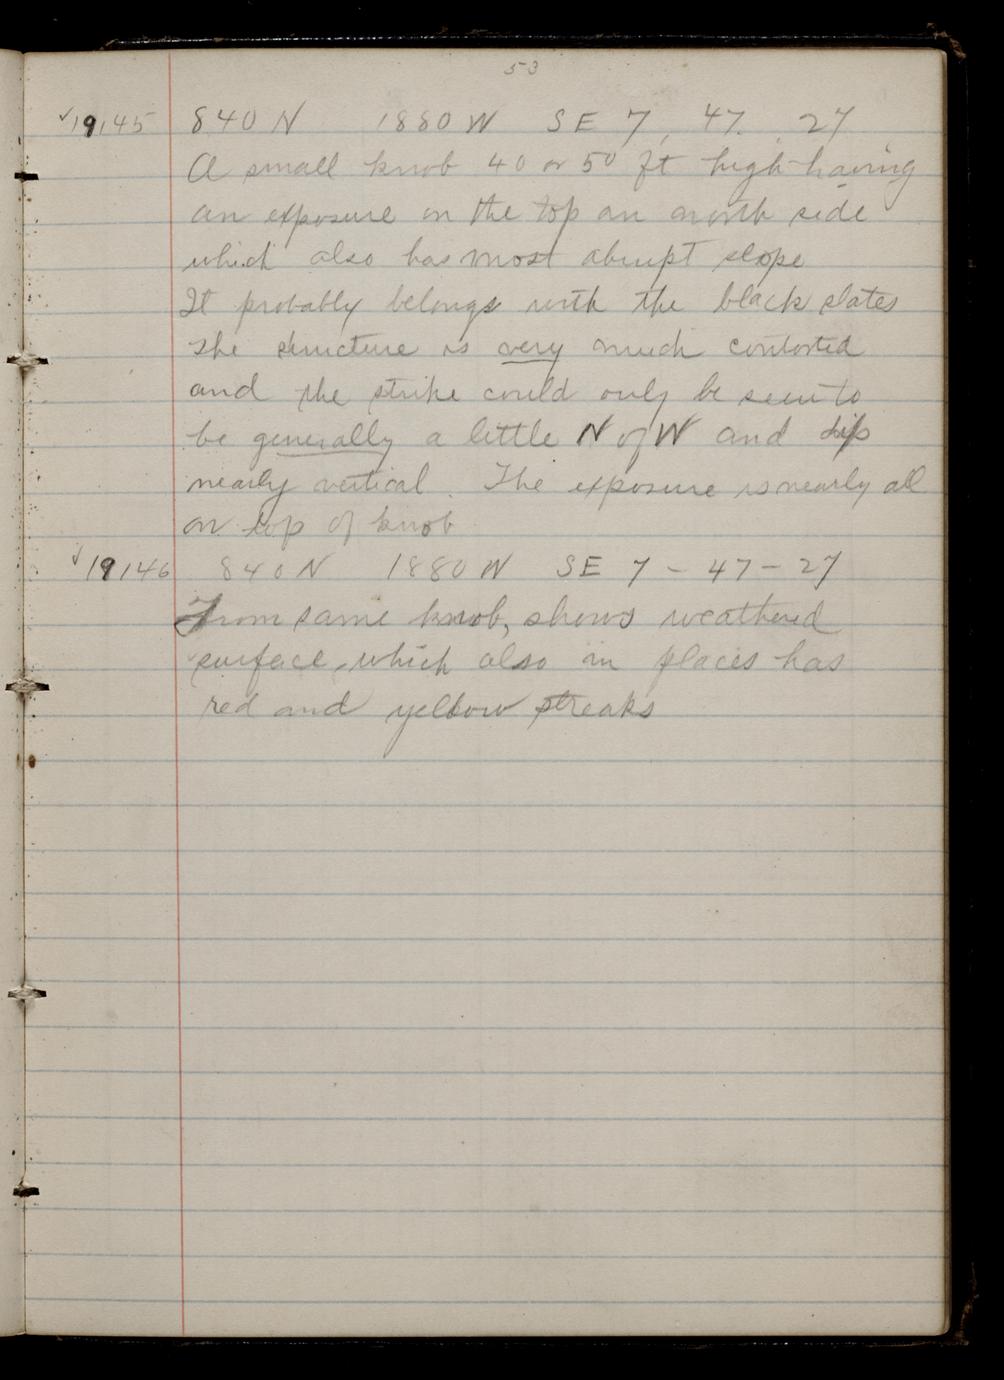 53
✓19145 840 N 1880 W SE 7, 47. 27
A small knob 40 or 50 ft high having
an exposure on the top an north side
which also has most abrupt slope
It probably belongs with the black slates
The structure is very much contorted
and the strike could only be seen to
be generally a little N of W and dip
nearly vertical. The exposure is nearly all
on top of knob
✓19146 840 N 1880 W SE 7 - 47 - 27
From same knob, shows weathered
surface, which also in places has
red and yellow streaks